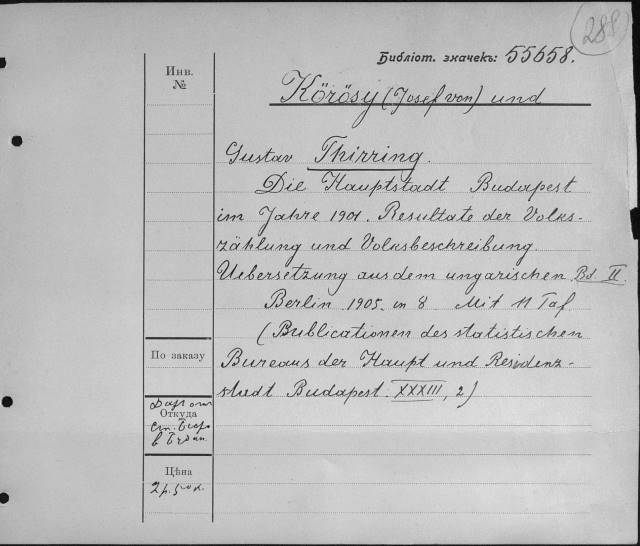 288
Библіот. значекъ: 55658.
Инв.
№
Körösy (Josef von) und
Gustav Thirring.
Die Hauptstadt Budapest
im Jahre 1901. Resultate der Volks-
zählung und Volksbeschreibung.
Uebersetzung aus dem ungarischen Bd. II.
Berlin 1905. in 8 Mit 11 Taf
(Publicationen des statistischen
По заказу
Bureaus der Haupt und Residenz-
stadt Budapest. XXXIII, 2)
Даръ от
Откуда
ст. Бюро
в
Цѣна
2р.50к.